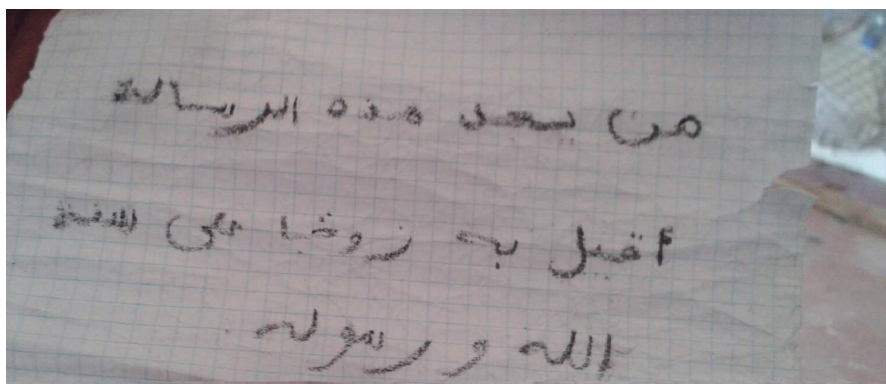 من يجد هذه الرسالة
اقبل به زوجا على سنة
الله و رسوله